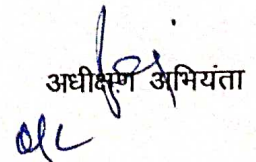 अधीक्षण अभियंता